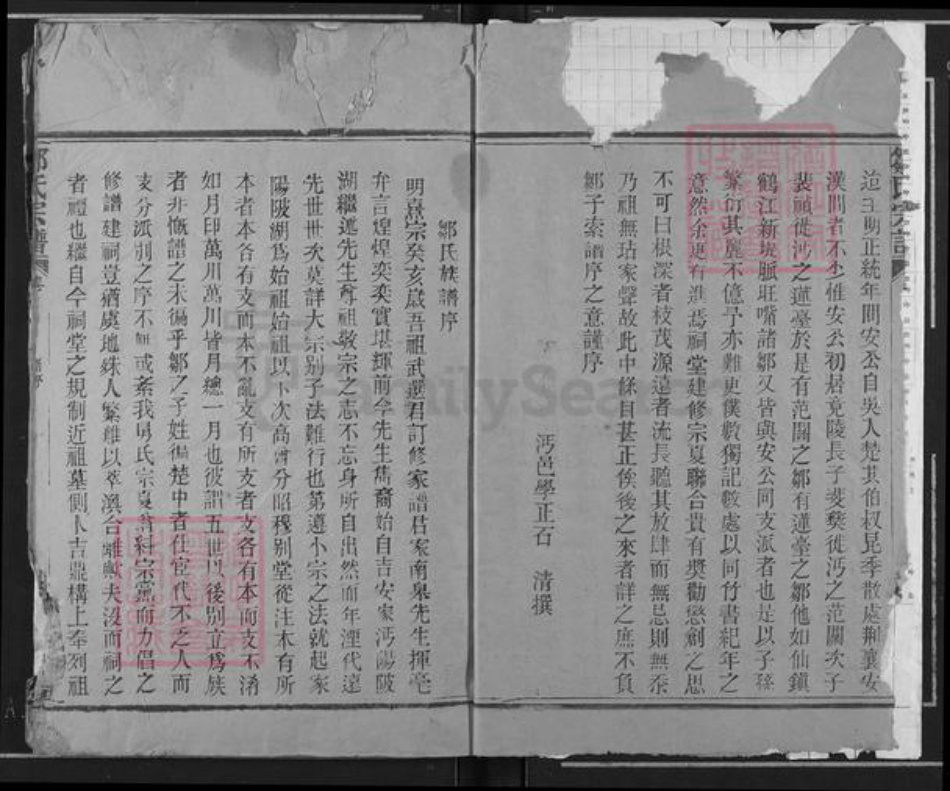 迨至明正統年間安公自吳入楚其伯叔昆季散處荆襄安
漢間者不少惟安公初居竟陵長子斐奬徙沔之范關次子
裴禎徙沔之蓮臺於是有范關之鄒有蓮臺之鄒他如仙鎮
鶴江新堤脈旺嘴諸鄒又皆與安公同支派者也是以子孫
繁衍其麗不億予亦難更僕數獨記數處以同竹書紀年之
意然余更有進焉祠堂建修宗夏聯合貴有奬勸懲創之思
不可曰根深者枝茂源遠者流長聽其放肆而無忌則無忝
乃祖無玷家聲故此中條目甚正俟後之來者詳之庶不負
鄒子索譜序之意謹序
沔邑學正石 清撰
鄒氏族譜序
明熹宗癸亥歲吾祖武選君訂修家譜君家南臯先生揮毫
弁言煌煌奕奕實堪輝前今先生雋裔始自吉安家沔陽陂
湖繼述先生尊祖敬宗之志不忘身所自出然而年湮代遠
先世世次莫詳大宗别子法難行也第遵小宗之法就起家
陽陂湖爲始祖始祖以下次高曾分昭穆别堂從注木有所
本者本各有支而本不亂支有所支者支各有本而支不淆
如月印萬川萬川皆月總一月也彼謂五世以後别立爲族
者非慨譜之未徧乎鄒之子姓徧楚中者仕宦代不乏人而
支分派别之序不無或紊我舅氏宗夏翁糾宗黨而力倡之
修譜建祠豈猶虞地殊人繁難以萃渙合離歟夫沒而祠之
者禮也繼自今祠堂之規制近祖墓側卜吉鼎構上奉列祖
鄒氏宗譜